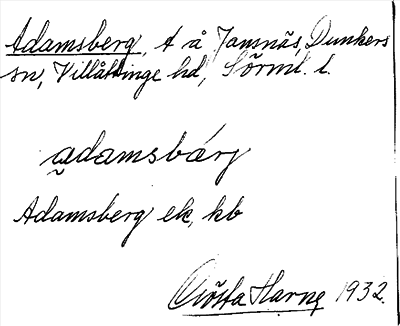 Adamsberg, t å Jamsnäs, Dunkers
sn, Villåttinge hd, Sörml. l.
adamsbárj
Adamsberg ek, kb
Gösta Harne 1932.